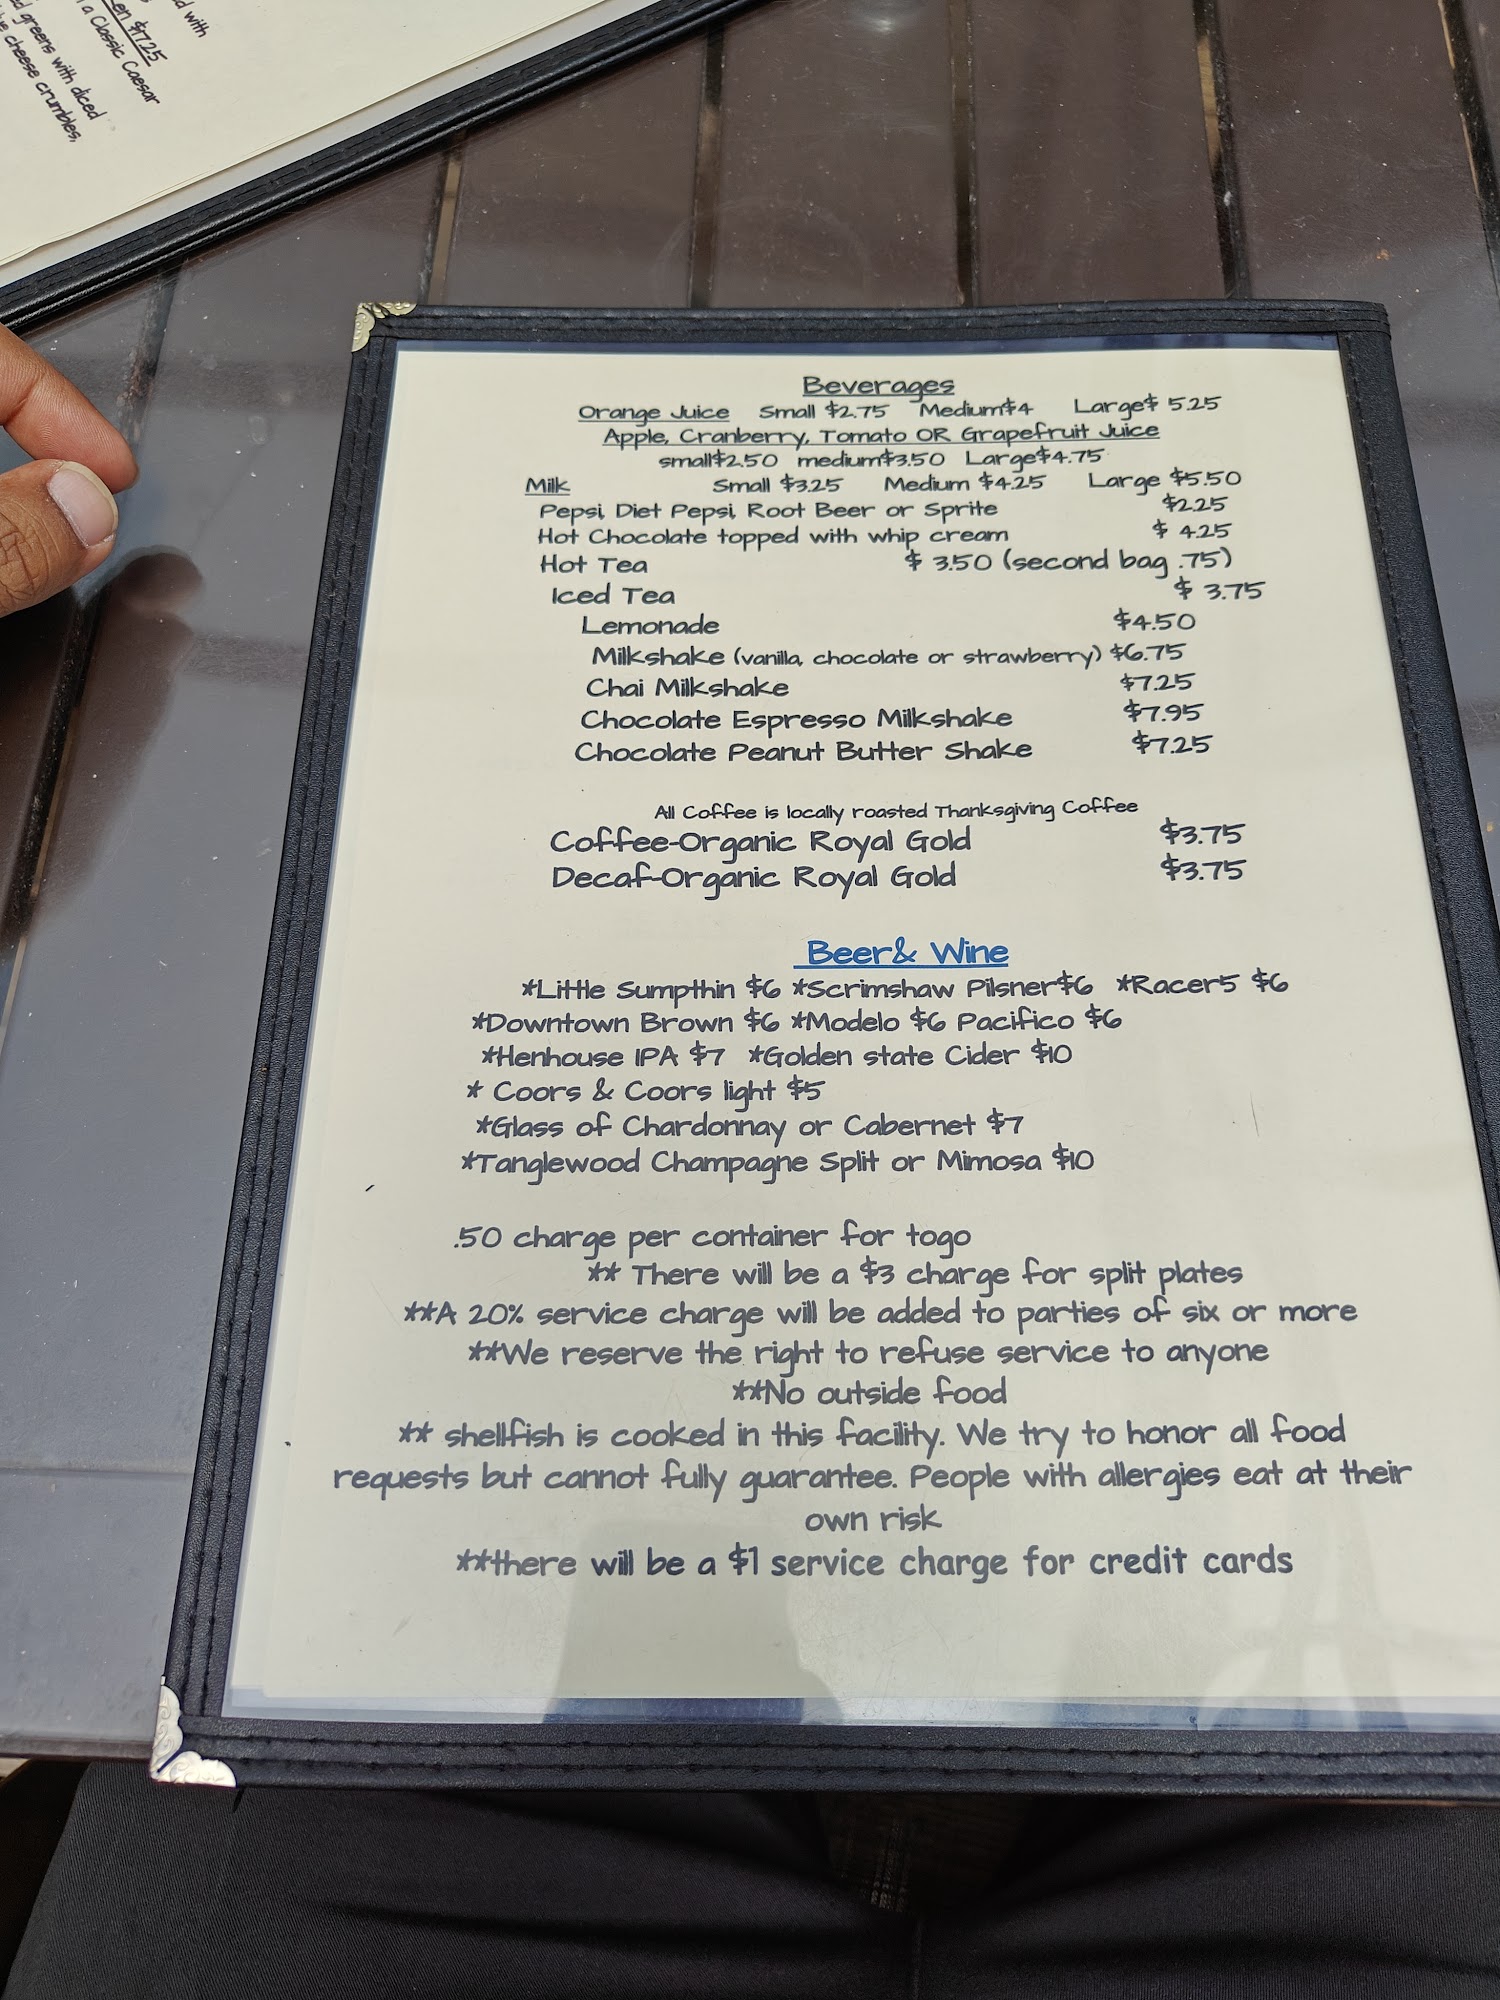 d with
en $17.25
n a Classic Caesar
d greens with diced
cheese crumbles,
Beverages
Orange Juice Small $2.75 Medium$4 Large$ 5.25
Apple, Cranberry, Tomato OR Grapefruit Juice
small$2.50 medium$3.50 Large$4.75
Milk Small $3.25 Medium $4.25 Large $5.50
Pepsi, Diet Pepsi, Root Beer or Sprite $2.25
Hot Chocolate topped with whip cream $ 4.25
Hot Tea $ 3.50 (second bag .75)
Iced Tea $ 3.75
Lemonade $4.50
Milkshake (vanilla, chocolate or strawberry) $6.75
Chai Milkshake $7.25
Chocolate Espresso Milkshake $7.95
Chocolate Peanut Butter Shake $7.25
All Coffee is locally roasted Thanksgiving Coffee
Coffee-Organic Royal Gold $3.75
Decaf-Organic Royal Gold $3.75
Beer& Wine
*Little Sumpthin $6 *Scrimshaw Pilsner$6 *Racer5 $6
*Downtown Brown $6 *Modelo $6 Pacifico $6
*Henhouse IPA $7 *Golden state Cider $10
* Coors & Coors light $5
*Glass of Chardonnay or Cabernet $7
*Tanglewood Champagne Split or Mimosa $10
.50 charge per container for togo
** There will be a $3 charge for split plates
**A 20% service charge will be added to parties of six or more
**We reserve the right to refuse service to anyone
**No outside food
** shellfish is cooked in this facility. We try to honor all food
requests but cannot fully guarantee. People with allergies eat at their
own risk
**there will be a $1 service charge for credit cards